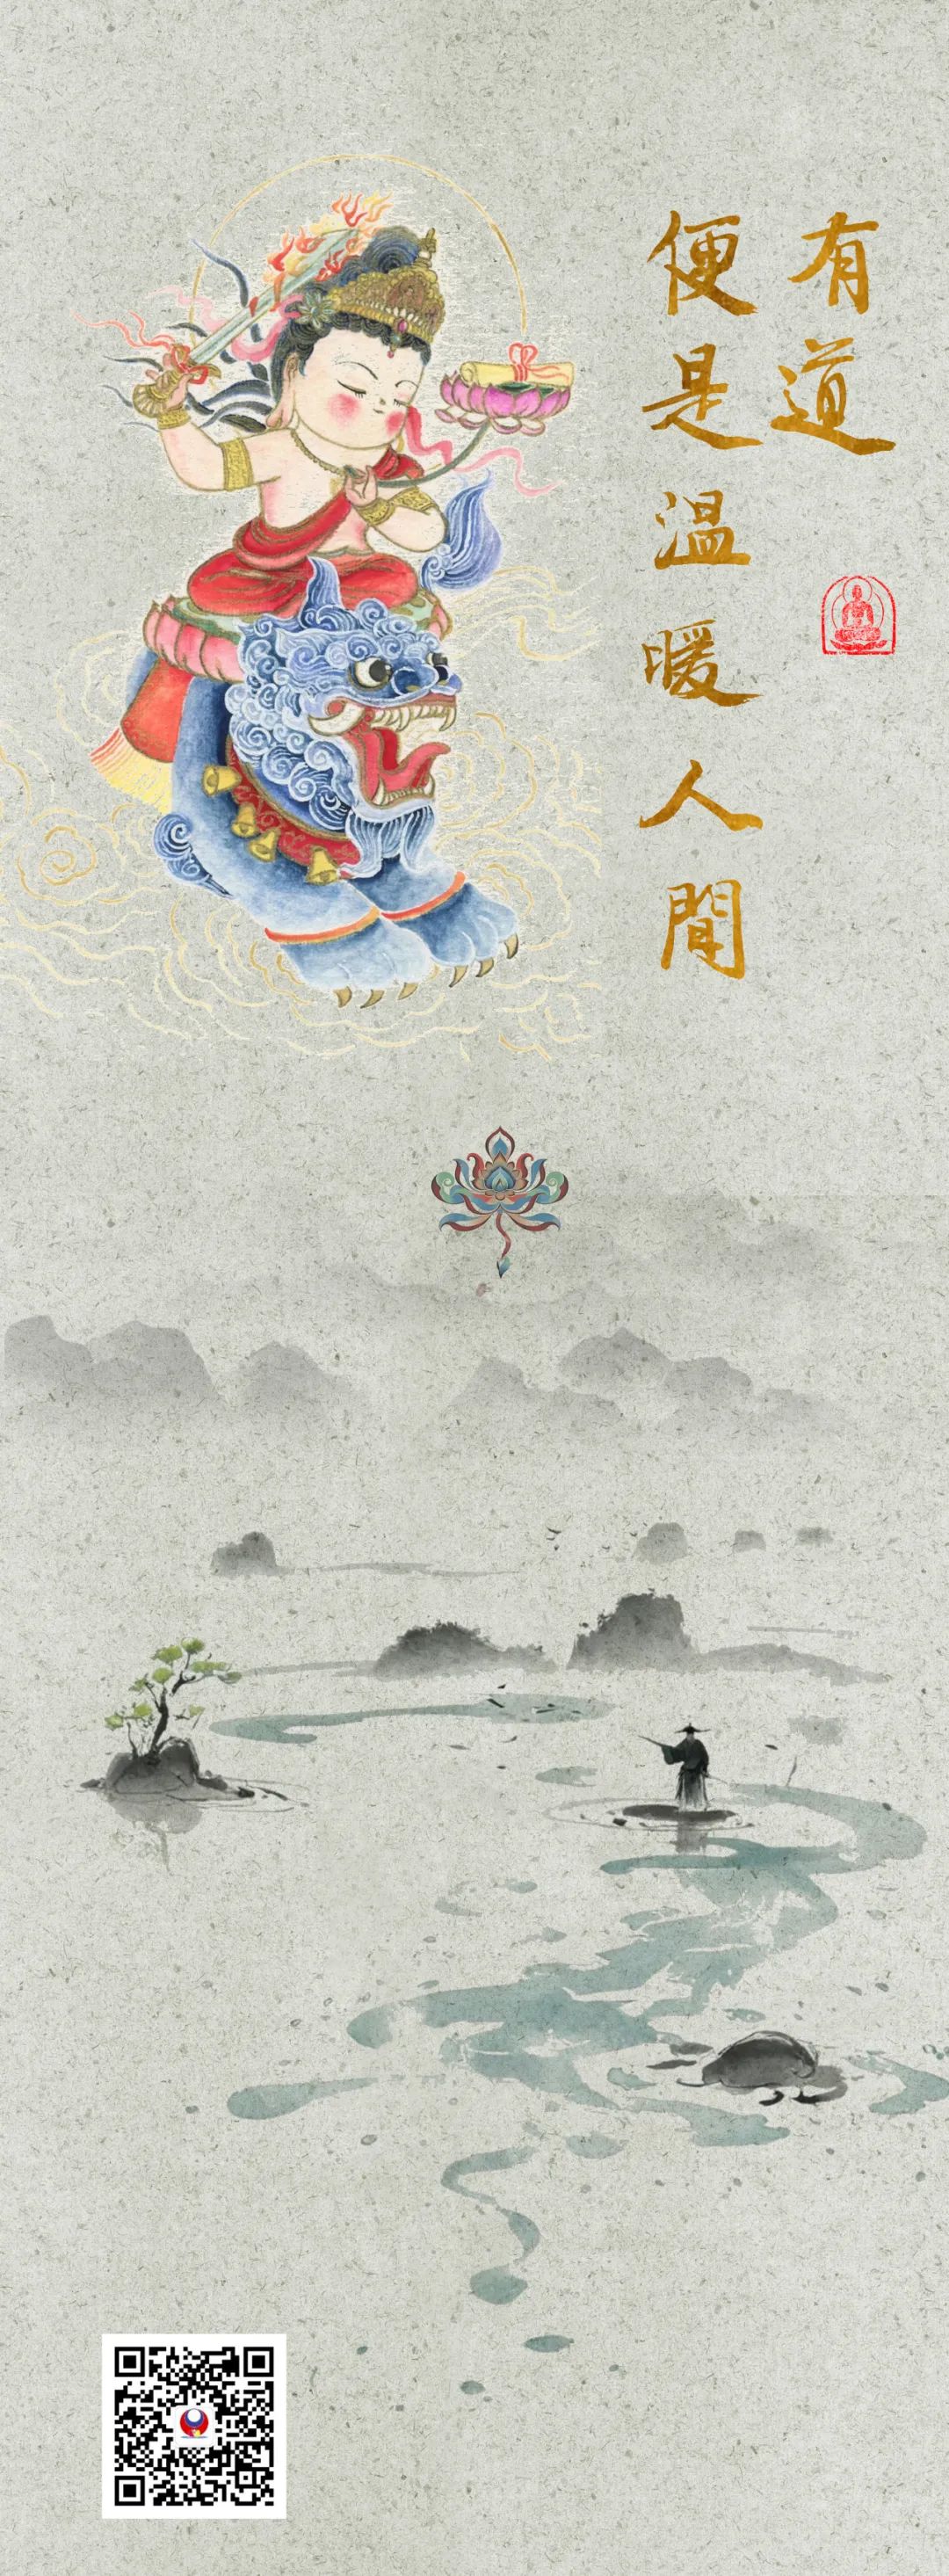 有道
便是温暖人間